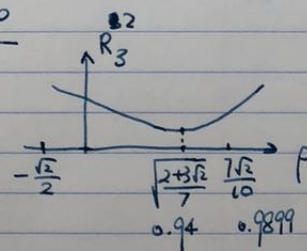 R₃²
-√2/2 √((2+3√2)/7) 7√2/10 ρ
0.94 0.9899